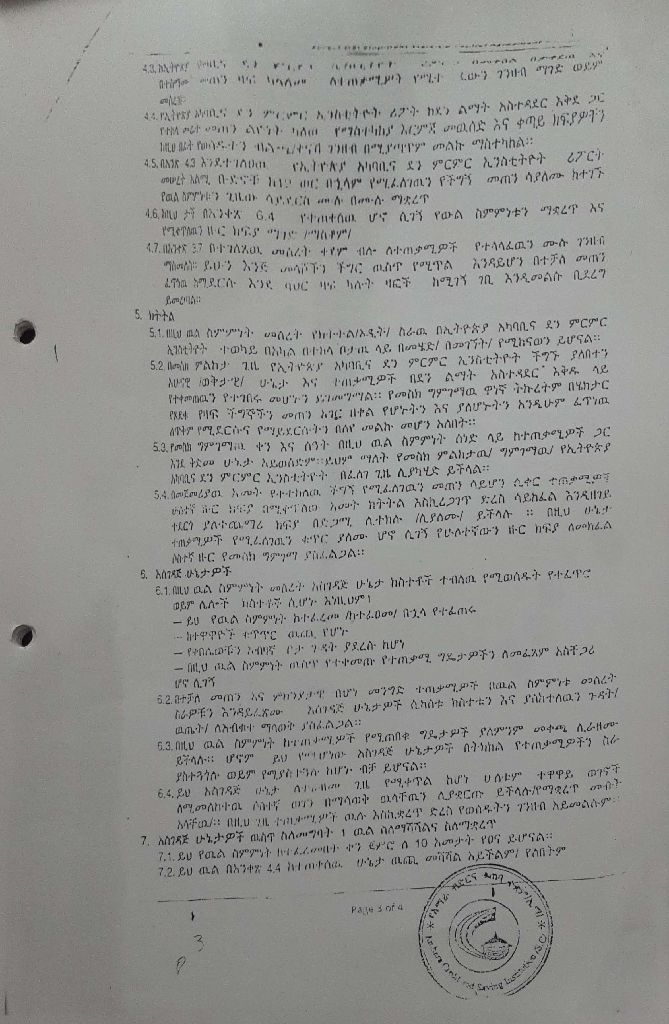 በተስማማ መጠን ዛፍ ካላለመ ለተጠቃሚዎች የሚተ ረውን ገንዘብ ማገድ ወይም
4.4. የኢትዮጵያ አካባቢና ደን ምርምር ኢንስቲትዮት ሪፖት ከደን ልማት አስተዳደር እቅድ ጋር
መጠን ልዩነት ካለው የማስተካከያ እርምጃ መዉሰድ እና ቀጣይ ክፍያዎችን
ገንዘብ በሚያጣጥም መልኩ ማስተካከል።
4.5. በአንቀ 4.3 እንደተገለፀዉ የኢትዮጵያ አካባቢና ደን ምርምር ኢንስቲትዮት ሪፖርት
መሠረት ወር በኋላም የሚፈለገዉን የችግኝ መጠን ሳያለሙ ከተገኙ
የዉል ስምምነቱን ጊዜዉ ሳይደርስ ሙሉ በሙሉ ማቋረጥ
4.6. ከዚህ ታች በአንቀጽ 6.4 የተጠቀሰዉ ሆኖ ሲገኝ የውል ስምምነቱን ማቋረጥ እና
የሚቀጥለዉን ዙር ክፍያ ማገድ /ማስቆም/
4.7. በአንቀጽ 3.7 በተገለጸዉ መሰረት ቀየም ብሎ ለተጠቃሚዎች የተላላፈዉን ሙሉ ገንዘብ
ማስመለስ። ይሁን እንጅ መላሾችን ችግር ዉስጥ የሚጥል እንዳይሆን በተቻለ መጠን
ፈጥነዉ እሚደርሱ እንደ ባህር ዛፍ ካሉት ዛፎች ከሚገኝ ገቢ እንዲመልሱ ቢደረግ
ይመረጣል።
5. ክትትል
5.1. በዚህ ዉል ስምምነት መሰረት የክትትል/ኦዲት/ ስራዉ በኢትዮጵያ አካባቢና ደን ምርምር
ኢንስቲትዮት ተወካይ በአካል በተክሉ ቦታዉ ላይ በመሄድ/ በመገኘት/ የሚከናወን ይሆናል።
5.2. በመስክ ምልከታ ጊዜ የኢትዮጵያ አካባቢና ደን ምርምር ኢንስቲትዮት ችግኙ ያለበትን
አሁናዊ /ወቅታዊ/ ሁኔታ እና ተጠቃሚዎች በደን ልማት አስተዳደር እቅዱ ላይ
የተቀመጠዉን የተገበሩ መሆኑን ይገመግማል። የመስክ ግምገማዉ ዋነኛ ትኩረትም በሄክታር
የጸደቀ የዛፍ ችግኞችን መጠን አገር በቀል የሆኑትን እና ያልሆኑትን እንዲሁም ፈጥነዉ
ለጥቅም የሚደርሱና የማይደርሱትን በለየ መልኩ መሆን አለበት።
5.3. የመስክ ግምገማዉ ቀን እና ሰዓት በዚህ ዉል ስምምነት ሰነድ ላይ ከተጠቃሚዎች ጋር
እንደ ቅድመ ሁኔታ አይወሰድም።ይህም ማለት የመስክ ምልከታዉ/ ግምገማዉ/ የኢትዮጵያ
አካባቢና ደን ምርምር ኢንስቲትዮት በፈለገ ጊዜ ሊያካሂድ ይችላል።
5.4. በመጀመሪያዉ አመት የተተከለዉ ችግኝ የሚፈለገዉን መጠን ሳይሆን ሲቀር ተጠቃሚዎች
ሁለተኛ ዙር ክፍያ በሚቀጥለው አመት ክትትል እስኪረጋገጥ ድረስ ሳይከፈል እንዲዘገይ
ተደርጎ ያለተጨማሪ ክፍያ በድጋሚ ሊተክሉ /ሊያለሙ/ ይችላሉ ። በዚህ ሁኔታ
ተጠቃሚዎች የሚፈለገዉን ቁጥር ያለሙ ሆኖ ሲገኝ የሁለተኛውን ዙር ክፍያ ለመክፈል
ሶስተኛ ዙር የመስክ ግምገማ ያስፈልጋል።
6. አስገዳጅ ሁኔታዎች
6.1. በዚህ ዉል ስምምነት መሰረት አስገዳጅ ሁኔታ ክስተቶች ተብለዉ የሚወሰዱት የተፈጥሮ
ወይም ሌሎች ክስተቶች ሲሆኑ እነዚህም፤
– ይህ የዉል ስምምነት ከተፈረመ /ከተፈፀመ/ በኋላ የተፈጠሩ
– ከተዋዋዮች ቁጥጥር ዉጪ የሆኑ
ጉዳት ያደረሱ ከሆነ
– በዚህ ዉል ስምምነት ዉስጥ የተቀመጡ የተጠቃሚ ግዴታዎችን ለመፈጸም አስቸጋሪ
ሆኖ ሲገኝ
6.2. በተቻለ መጠን እና ምክንያታዊ በሆነ መንግድ ተጠቃሚዎች በዉል ስምምነቱ መሰረት
ስራዎቹን እንዳይፈጽሙ አስገዳጅ ሁኔታዎች ሲከሰቱ ክስተቱን እና ያስከተለዉን ጉዳት/
ዉጤት/ ለአብቁተ ማሳወቅ ያስፈልጋል።
6.3. በዚህ ዉል ስምምነት ከተጠቃሚዎች የሚጠበቁ ግዴታዎች ያለምንም መቀጫ ሊራዘሙ
ይችላሉ። ሆኖም ይህ የሚሆነው አስገዳጅ ሁኔታዎች በትክክል የተጠቃሚዎችን ስራ
ያስተጓጎሉ ወይም የሚያስተጓጉሉ ከሆኑ ብቻ ይሆናል።
6.4. ይህ አስገዳጅ ሁኔታ ለተራዘመ ጊዜ የሚቀጥል ከሆነ ሁለቱም ተዋዋይ ወገኖች
ለሚመለከተዉ ሶስተኛ ወገን በማሳወቅ ዉላቸዉን ሊያቋርጡ ይችላሉ/የማቋረጥ መብት
አላቸዉ/። በዚህ ጊዜ ተጠቃሚዎች ዉሉ እስኪቋረጥ ድረስ የወሰዱትን ገንዘብ አይመልሱም።
7. አስገዳጅ ሁኔታዎች ዉስጥ ስለመግባት 1 ዉል ስለማሻሻልና ስለማቋረጥ
7.1. ይህ የዉል ስምምነት ከተፈረመበት ቀን ጀምሮ ለ 10 አመታት የፀና ይሆናል።
7.2. ይህ ዉል በአንቀጽ 4.4 ከተጠቀሰዉ ሁኔታ ዉጪ መሻሻል አይችልም/ የለበትም
Page 3 of 4
3